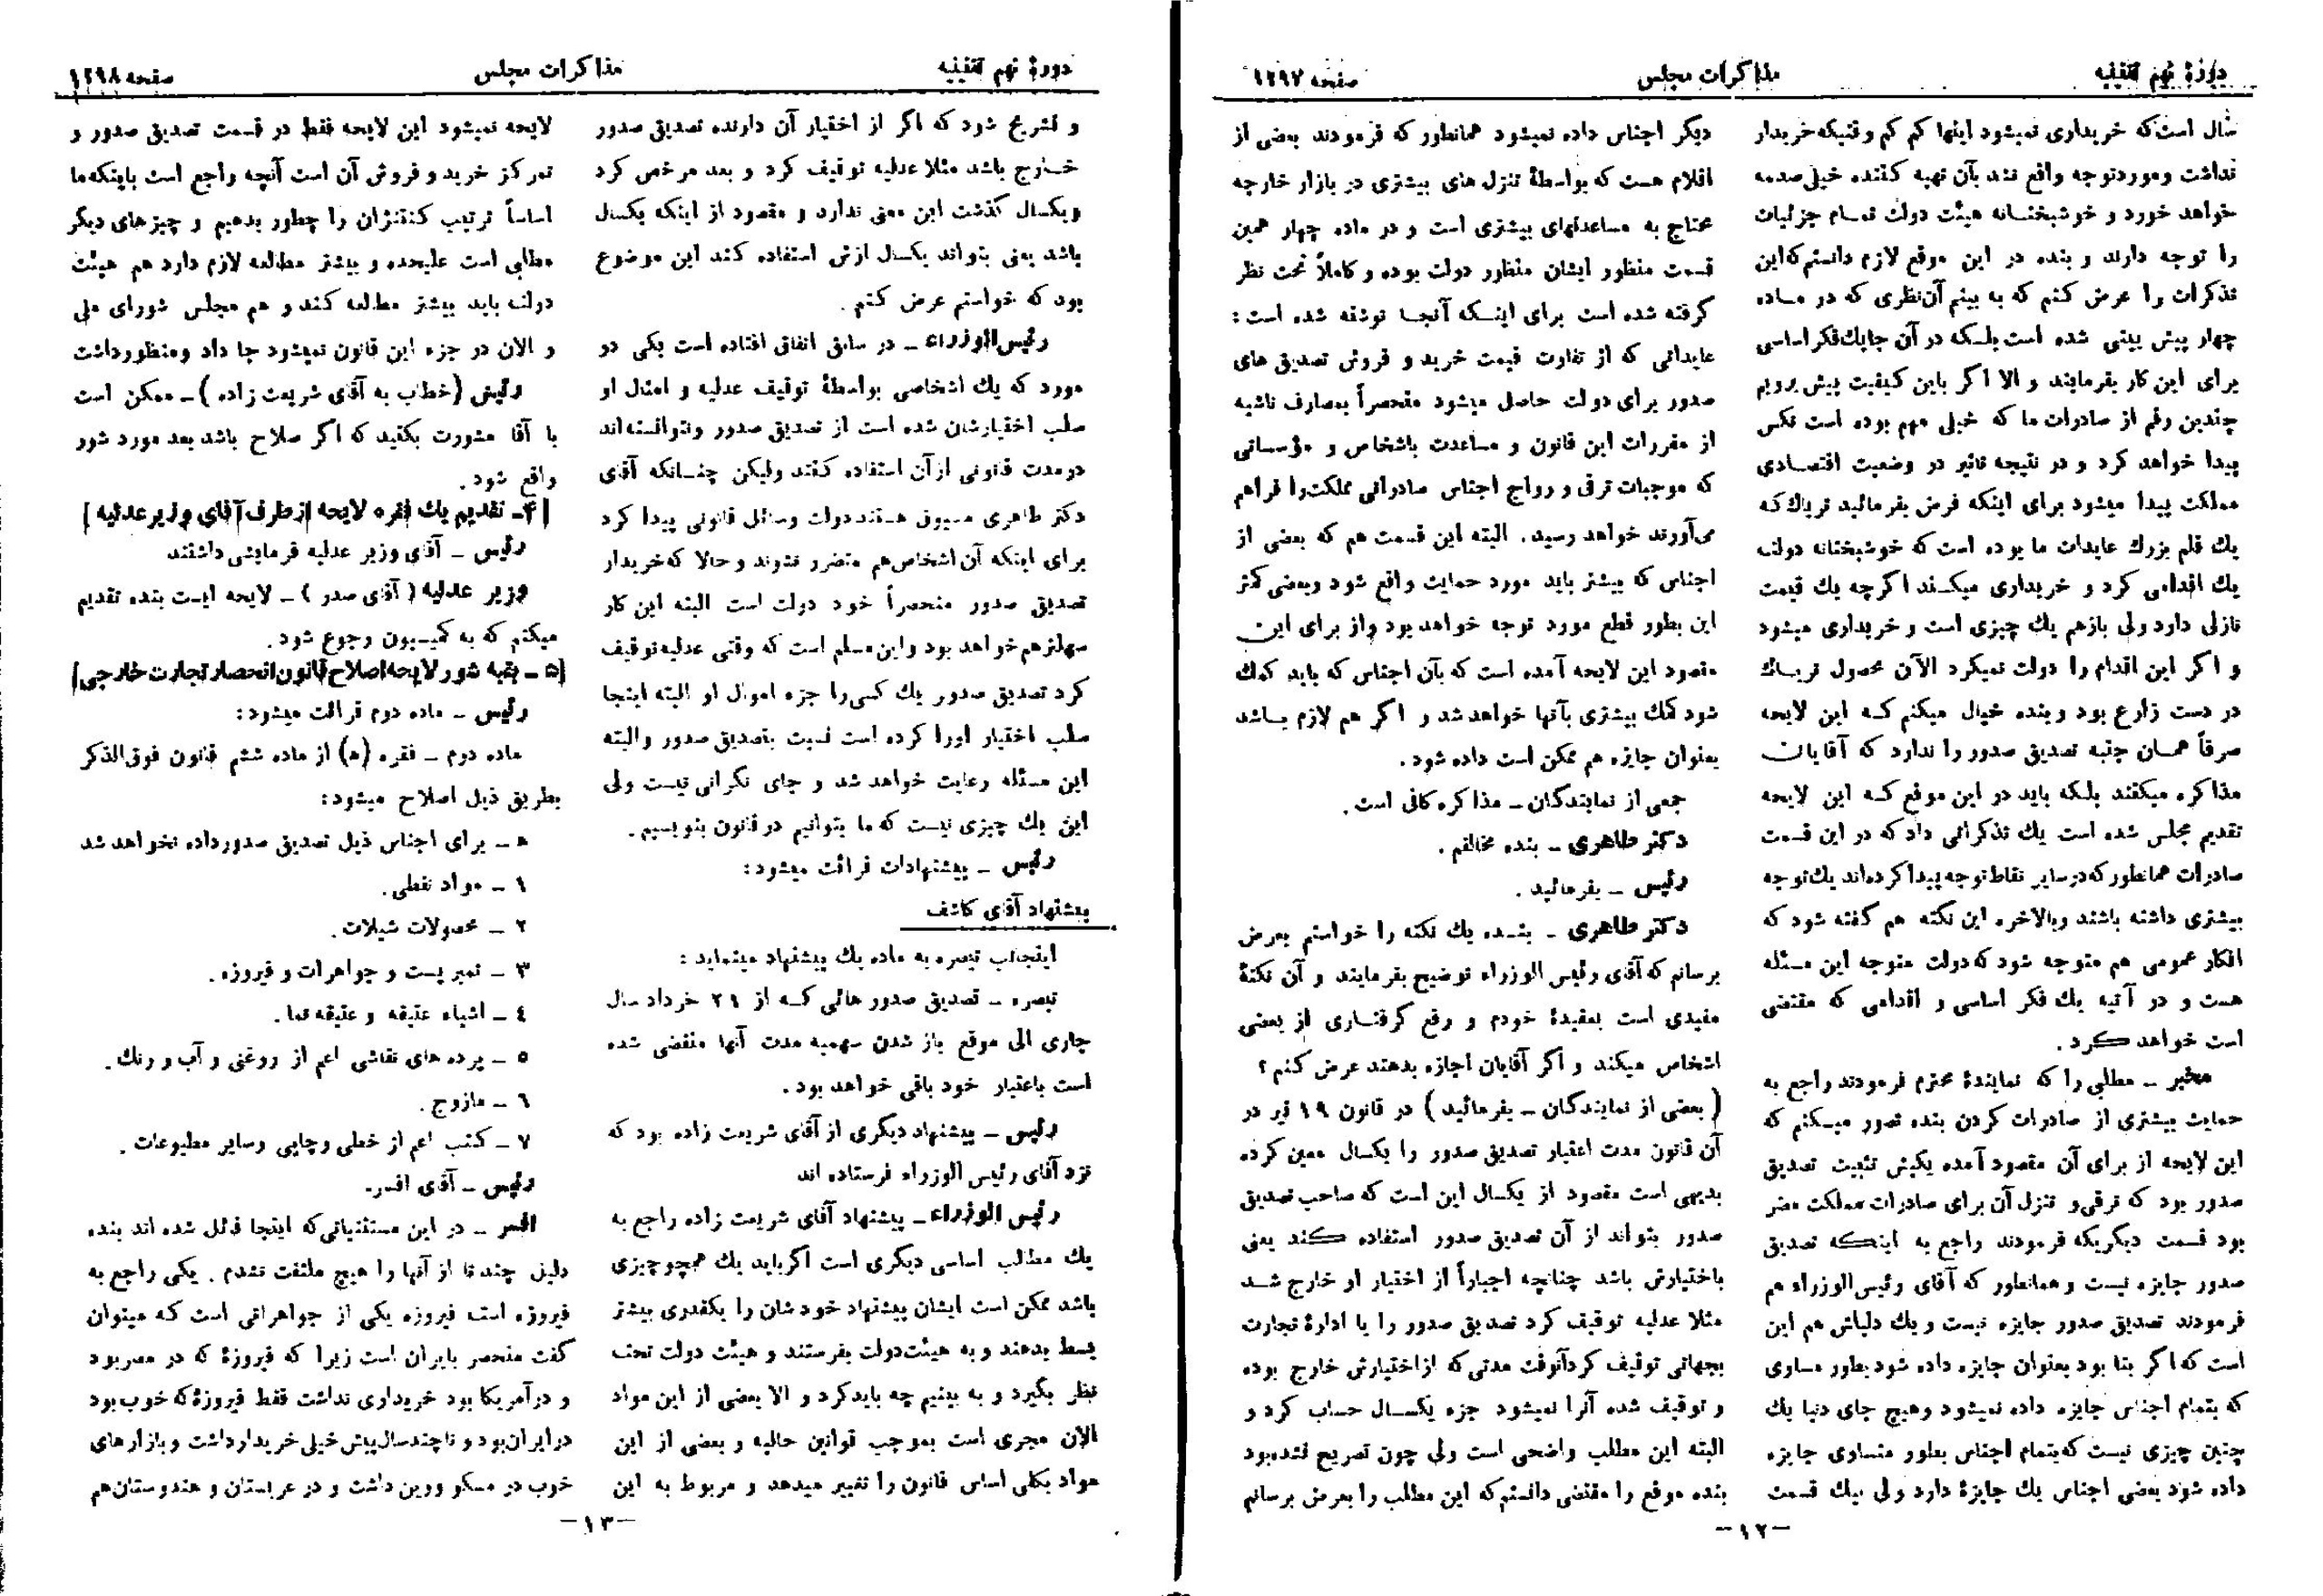 دورهٔ نهم تقنینیه
مذاکرات مجلس
صفحه ۱۲۹۷
سال است که خریداری نمیشود اینها کم کم وقتیکه خریدار
نداشت و موردتوجه واقع نشد بآن تهیه کننده خیلی صدمه
خواهد خورد و خوشبختانه هیئت دولت تمام جزئیات
را توجه دارند و بنده در این موقع لازم دانستم که این
تذکرات را عرض کنم که به بینم آن نظری که در ماده
چهار پیش بینی شده است بلکه در آن جا یك فکر اساسی
برای این کار بفرمایند و الا اگر باین کیفیت پیش برویم
چندین رقم از صادرات ما که خیلی مهم بوده است نکس
پیدا خواهد کرد و در نتیجه تاثیر در وضعیت اقتصادی
مملکت پیدا میشود برای اینکه فرض بفرمائید تریاك که
یك قلم بزرك عایدات ما بوده است که خوشبختانه دولت
یك اقدامی کرد و خریداری میکند اگرچه یك قیمت
نازلی دارد ولی بازهم یك چیزی است و خریداری میشود
و اگر این اقدام را دولت نمیکرد الآن محصول تریاك
در دست زارع بود و بنده خیال میکنم که این لایحه
صرفاً همان جنبه تصدیق صدور را ندارد که آقایان
مذاکره میکنند بلکه باید در این موقع که این لایحه
تقدیم مجلس شده است یك تذکراتی داد که در این قسمت
صادرات همانطور که در سایر نقاط توجه پیدا کرده‌اند یك توجه
بیشتری داشته باشند وبالاخره این نکته هم گفته شود که
افکار عمومی هم متوجه شود که دولت متوجه این مسئله
هست و در آتیه یك فکر اساسی و اقدامی که مقتضی
است خواهد کرد .
مخبر ـ مطلبی را که نمایندهٔ محترم فرمودند راجع به
حمایت بیشتری از صادرات کردن بنده تصور میکنم که
این لایحه از برای آن مقصود آمده یکیش تثبیت تصدیق
صدور بود که ترقی و تنزل آن برای صادرات مملکت مضر
بود قسمت دیگریکه فرمودند راجع به اینکه تصدیق
صدور جایزه نیست و همانطور که آقای رئیس‌الوزراء هم
فرمودند تصدیق صدور جایزه نیست و یك دلیلش هم این
است که اگر بنا بود بعنوان جایزه داده شود بطور مساوی
که بتمام اجناس جایزه داده نمیشود وهیچ جای دنیا یك
چنین چیزی نیست که بتمام اجناس بطور متساوی جایزه
داده شود بعضی اجناس یك جایزهٔ دارد ولی بیك قسمت
دیگر اجناس داده نمیشود همانطور که فرمودند بعضی از
اقلام هست که بواسطهٔ تنزل های بیشتری در بازار خارجه
محتاج به مساعدتهای بیشتری است و در ماده چهار همین
قسمت منظور ایشان منظور دولت بوده و کاملاً تحت نظر
گرفته شده است برای اینکه آنجا نوشته شده است :
عایداتی که از تفاوت قیمت خرید و فروش تصدیق های
صدور برای دولت حاصل میشود منحصراً بمصارف ناشیه
از مقررات این قانون و مساعدت باشخاص و مؤسساتی
که موجبات ترقی و رواج اجناس صادراتی مملکت را فراهم
می‌آورند خواهد رسید. البته این قسمت هم که بعضی از
اجناس که بیشتر باید مورد حمایت واقع شود وبعضی کمتر
این بطور قطع مورد توجه خواهد بود و از برای این
مقصود این لایحه آمده است که بآن اجناس که باید کمك
شود کمك بیشتری بآنها خواهد شد و اگر هم لازم باشد
بعنوان جایزه هم ممکن است داده شود .
جمعی از نمایندگان ـ مذاکره کافی است .
دکتر طاهری ـ بنده مخالفم .
رئیس ـ بفرمائید .
دکتر طاهری ـ بنده یك نکته را خواستم بعرض
برسانم که آقای رئیس الوزراء توضیح بفرمایند و آن نکتهٔ
مفیدی است بعقیدهٔ خودم و رفع گرفتاری از بعضی
اشخاص میکند و اگر آقایان اجازه بدهند عرض کنم ؟
( بعضی از نمایندگان ـ بفرمائید ) در قانون ۱۹ تیر در
آن قانون مدت اعتبار تصدیق صدور را یکسال معین کرده
بدیهی است مقصود از یکسال این است که صاحب تصدیق
صدور بتواند از آن تصدیق صدور استفاده کند یعنی
باختیارش باشد چنانچه اجباراً از اختیار او خارج شد
مثلا عدلیه توقیف کرد تصدیق صدور را یا ادارهٔ تجارت
بجهاتی توقیف کرد آنوقت مدتی که از اختیارش خارج بوده
و توقیف شده آنرا نمیشود جزء یکسال حساب کرد و
البته این مطلب واضحی است ولی چون تصریح نشده بود
بنده موقع را مقتضی دانستم که این مطلب را بعرض برسانم
-۱۲-
دورهٔ نهم تقنینیه
مذاکرات مجلس
صفحه ۱۲۹۸
و تشریح شود که اگر از اختیار آن دارنده تصدیق صدور
خارج باشد مثلا عدلیه توقیف کرد و بعد مرخص کرد
ویکسال گذشت این معنی ندارد و مقصود از اینکه یکسال
باشد یعنی بتواند یکسال ازش استفاده کند این موضوع
بود که خواستم عرض کنم .
رئیس‌الوزراء ـ در سابق اتفاق افتاده است یکی دو
مورد که یك اشخاصی بواسطهٔ توقیف عدلیه و امثال او
سلب اختیارشان شده است از تصدیق صدور ونتوانسته‌اند
درمدت قانونی از آن استفاده کنند ولیکن چنانکه آقای
دکتر طاهری مسبوق هستند دولت وسائل قانونی پیدا کرد
برای اینکه آن اشخاص هم متضرر نشوند و حالا که خریدار
تصدیق صدور منحصراً خود دولت است البته این کار
سهلتر هم خواهد بود واین مسلم است که وقتی عدلیه توقیف
کرد تصدیق صدور یك کسی را جزء اموال او البته اینجا
سلب اختیار اورا کرده است نسبت بتصدیق صدور والبته
این مسئله رعایت خواهد شد و جای نگرانی نیست ولی
این یك چیزی نیست که ما بتوانیم در قانون بنویسیم .
رئیس ـ پیشنهادات قرائت میشود:
پیشنهاد آقای کاشف
اینجانب تبصره به ماده یك پیشنهاد مینماید :
تبصره ـ تصدیق صدور هائی که از ۲۱ خرداد سال
جاری الی موقع باز شدن سهمیه مدت آنها منقضی شده
است باعتبار خود باقی خواهد بود .
رئیس ـ پیشنهاد دیگری از آقای شریعت زاده بود که
نزد آقای رئیس الوزراء فرستاده اند
رئیس الوزراء ـ پیشنهاد آقای شریعت زاده راجع به
یك مطالب اساسی دیگری است اگر باید یك همچو چیزی
باشد ممکن است ایشان پیشنهاد خودشان را یکقدری بیشتر
بسط بدهند و به هیئت دولت بفرستند و هیئت دولت تحت
نظر بگیرد و به بینیم چه باید کرد و الا بعضی از این مواد
الان مجری است بموجب قوانین حالیه و بعضی از این
مواد بکلی اساس قانون را تغییر میدهد و مربوط به این
لایحه نمیشود این لایحه فقط در قسمت تصدیق صدور و
تمرکز خرید و فروش آن است آنچه راجع است باینکه ما
اساساً ترتیب کنتنژان را چطور بدهیم و چیزهای دیگر
مطالبی است علیحده و بیشتر مطالعه لازم دارد هم هیئت
دولت باید بیشتر مطالعه کند و هم مجلس شورای ملی
و الان در جزء این قانون نمیشود جا داد ومنظور داشت
رئیس (خطاب به آقای شریعت زاده ) ـ ممکن است
با آقا مشورت بکنید که اگر صلاح باشد بعد مورد شور
واقع شود .
[۴ـ تقدیم یك فقره لایحه از طرف آقای وزیر عدلیه ]
رئیس ـ آقای وزیر عدلیه فرمایشی داشتند
وزیر عدلیه ( آقای صدر ) ـ لایحه ایست بنده تقدیم
میکنم که به کمیسیون رجوع شود .
[۵ ـ بقیه شور لایحه اصلاح قانون انحصار تجارت خارجی]
رئیس ـ ماده دوم قرائت میشود :
ماده دوم ـ فقره (ه) از ماده ششم قانون فوق‌الذکر
بطریق ذیل اصلاح میشود :
ه ـ برای اجناس ذیل تصدیق صدور داده نخواهد شد
۱ ـ مواد نفطی .
۲ ـ محصولات شیلات .
۳ ـ تمبر پست و جواهرات و فیروزه .
٤ ـ اشیاء عتیقه و عتیقه نما .
٥ ـ پرده های نقاشی اعم از روغنی و آب و رنك .
٦ ـ مازوج .
۷ ـ کتب اعم از خطی وچاپی وسایر مطبوعات .
رئیس ـ آقای افسر.
افسر ـ در این مستثنیاتی که اینجا قائل شده اند بنده
دلیل چند تا از آنها را هیچ ملتفت نشدم . یکی راجع به
فیروزه است فیروزه یکی از جواهراتی است که میتوان
گفت منحصر بایران است زیرا که فیروزهٔ که در مصر بود
و در آمریکا بود خریداری نداشت فقط فیروزهٔ که خوب بود
در ایران بود و تا چند سال پیش خیلی خریدار داشت و بازارهای
خوب در مسکو و وین داشت و در عربستان و هندوستان هم
-۱۳-